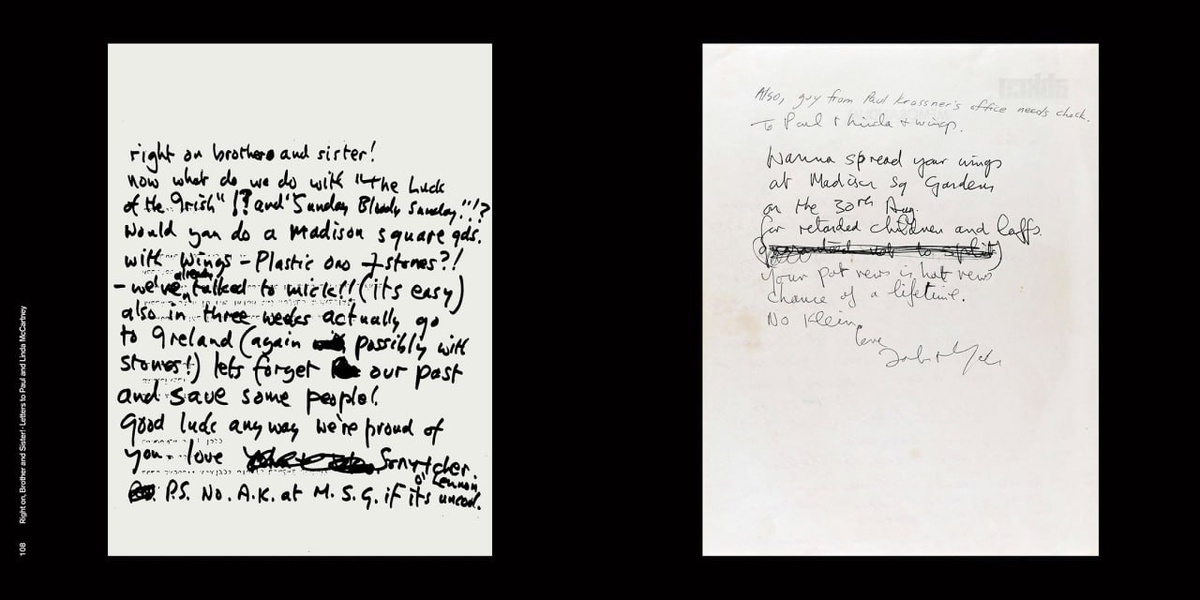 right on brothers and sister!
now what do we do with "the Luck
of the Irish"!? and "Sunday Bloody Sunday"!!?
would you do a Madison square gds.
with wings - Plastic ono + stones?!
- we've already talked to mick!! (its easy)
also in three weeks actually go
to Ireland (again possibly with
stones!) lets forget our past
and save some people!
Good luck anyway we're proud of
you. love Sonny + cher.
o' Lennon
P.S. No. A.K. at M.S.G. if its uncool.
Also, guy from Paul Krassner's office needs check.
To Paul + Linda + wings.
Wanna spread your wings
at Madison Sq Gardens
on the 30th Aug.
for retarded children and laffs
(guaranteed not to split)
Your pot news is hot news
chance of a lifetime.
No Klein.
love,
John + Yoko
108 Right on, Brother and Sister!: Letters to Paul and Linda McCartney